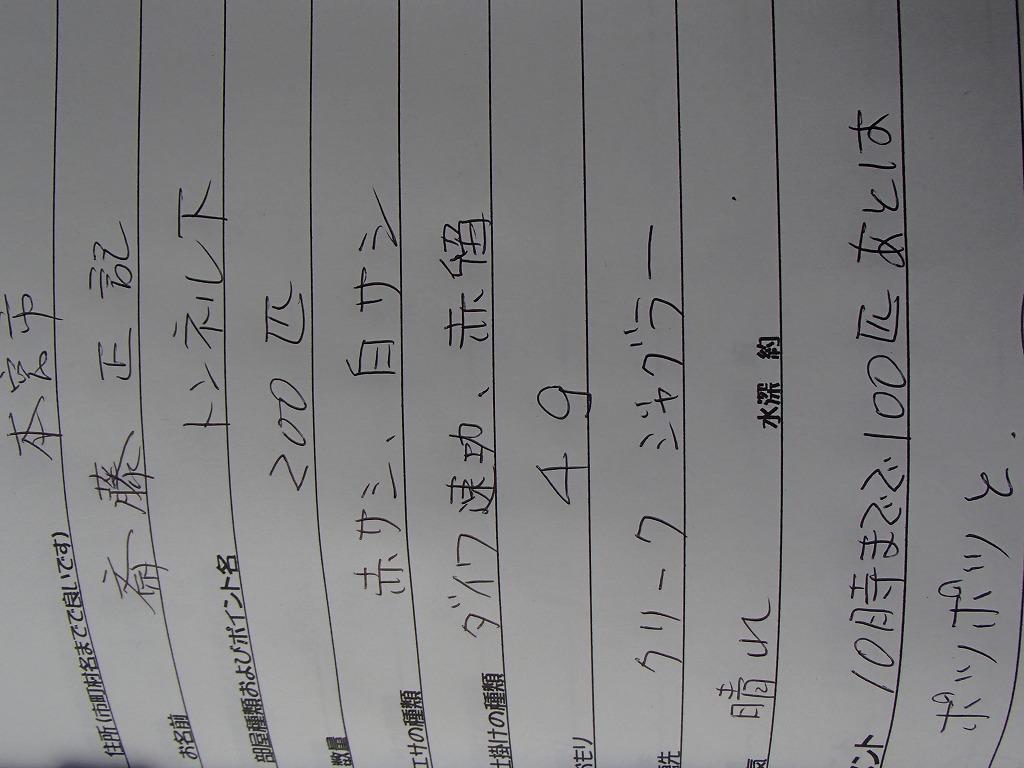 住所(市町村名までで良いです) 本宮市
お名前 斎藤 正記
部屋種類およびポイント名 トンネル下
数量 200匹
エサの種類 赤サシ、白サシ
仕掛けの種類 ダイワ速功、赤留
オモリ 4g
クリーク ジャグラー
晴れ 水深 約
10時まで100匹 あとは
ポツリポツリと.